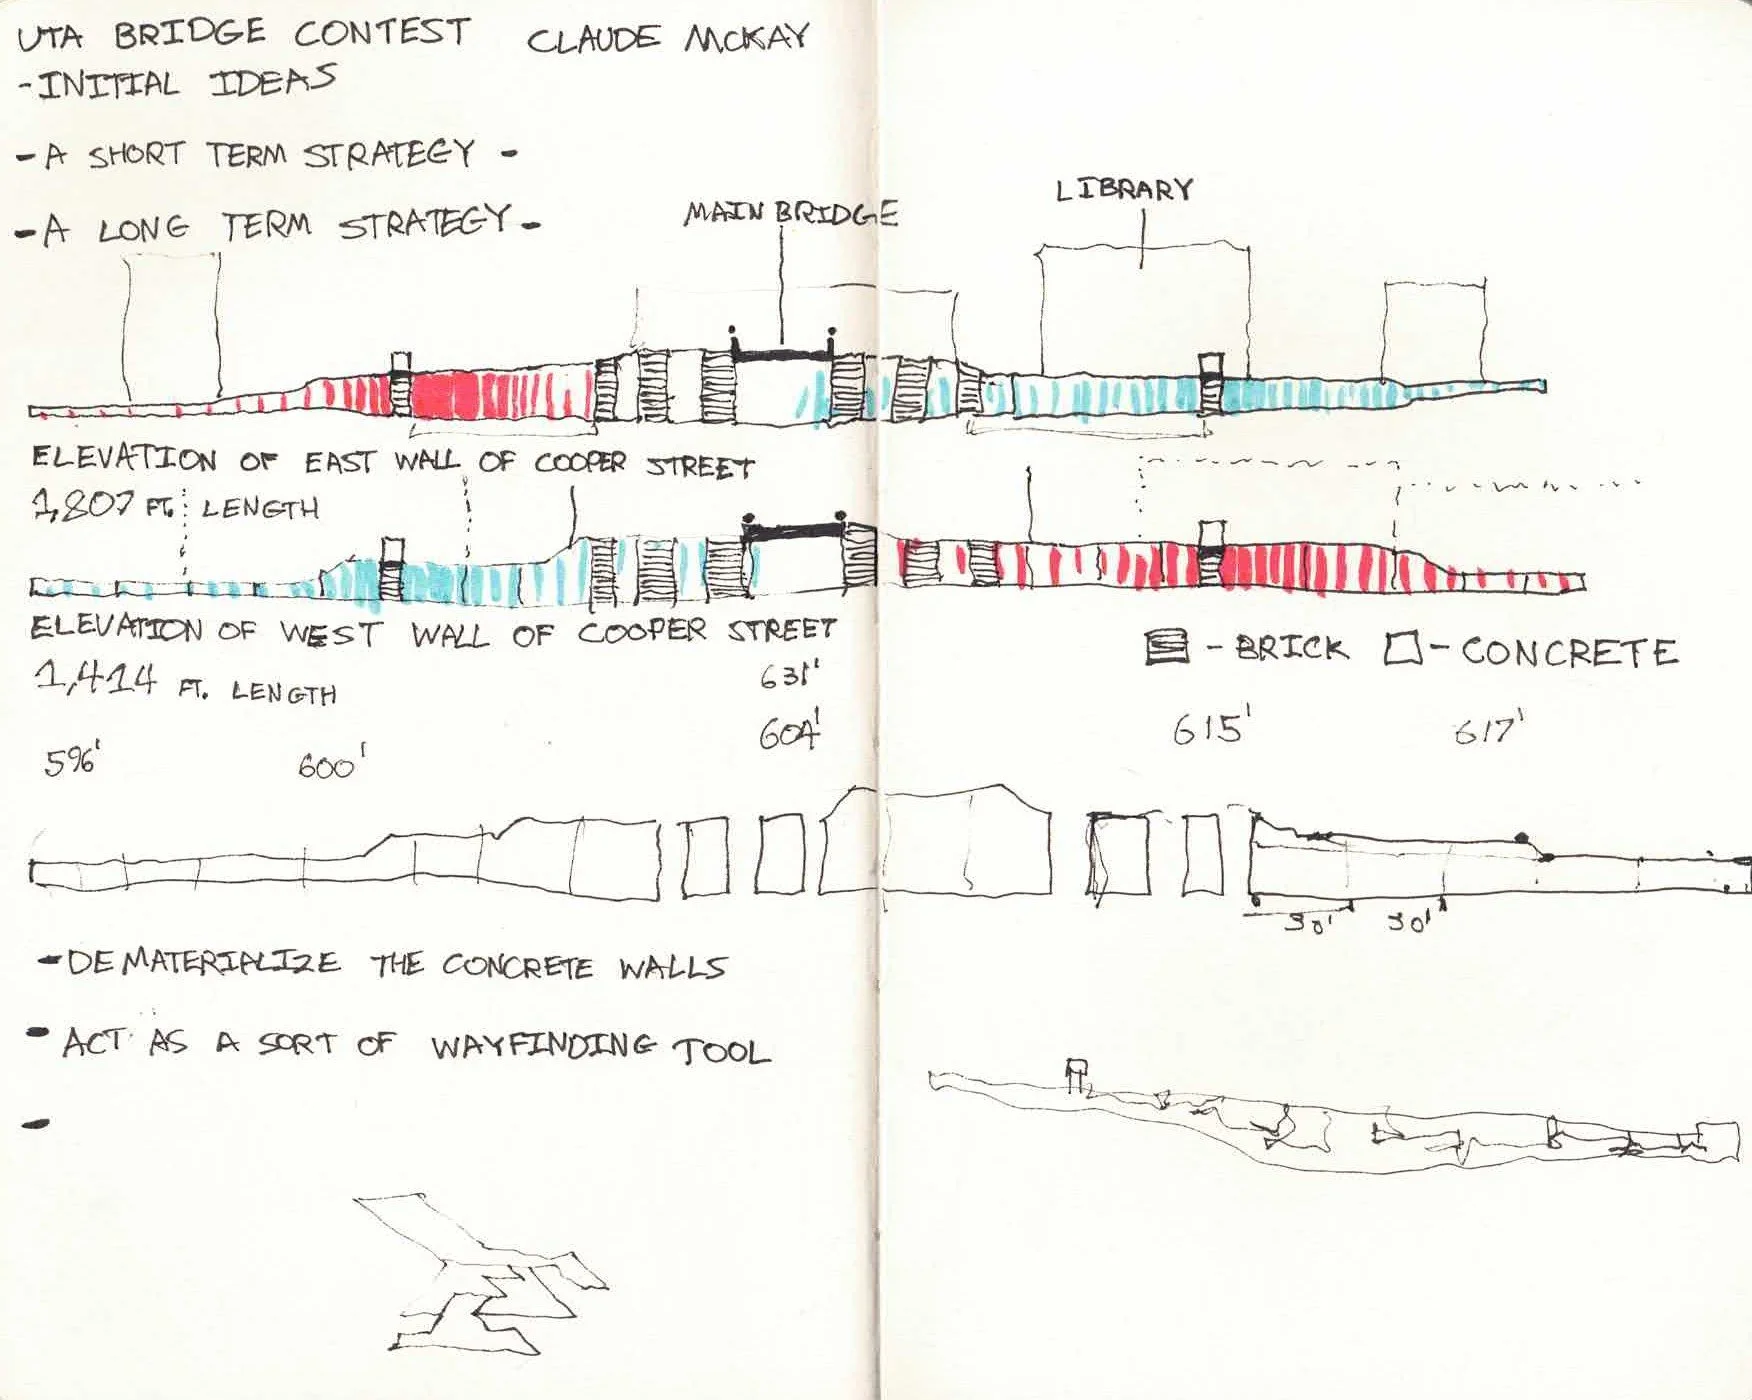 UTA BRIDGE CONTEST CLAUDE MCKAY
-INITIAL IDEAS
- A SHORT TERM STRATEGY -
- A LONG TERM STRATEGY -
MAIN BRIDGE
LIBRARY
ELEVATION OF EAST WALL OF COOPER STREET
1,807 FT. LENGTH
ELEVATION OF WEST WALL OF COOPER STREET
1,414 FT. LENGTH
- BRICK
- CONCRETE
631'
604'
615'
617'
596'
600'
30' 30'
- DEMATERIALIZE THE CONCRETE WALLS
- ACT AS A SORT OF WAYFINDING TOOL
-